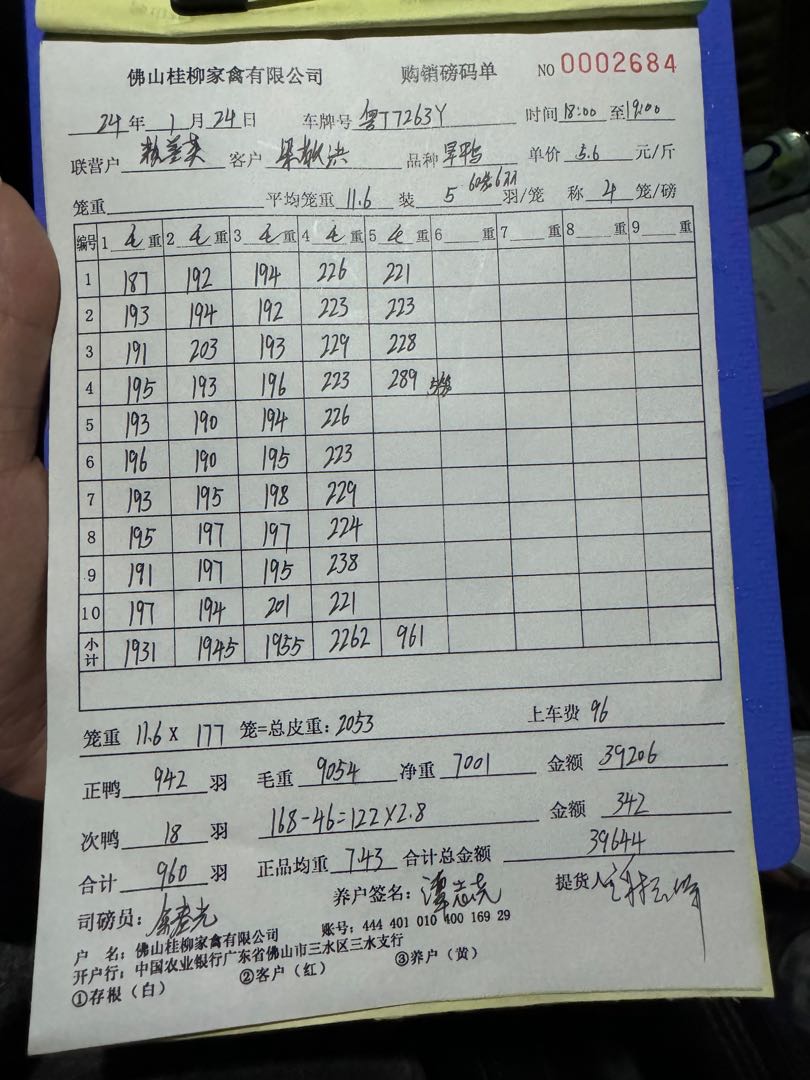 佛山桂柳家禽有限公司 购销磅码单 NO 0002684
24年 1月24日 车牌号 粤T7263Y 时间18:00至19:00
联营户 客户 品种 旱鸭 单价 5.6 元/斤
笼重 平均笼重 11.6 装 5 60笼6羽 羽/笼 称 4 笼/磅
编号 1 毛 重 2 毛 重 3 毛 重 4 毛 重 5 毛 重 6 重 7 重 8 重 9 重
1 187 192 194 226 221
2 193 194 192 223 223
3 191 203 193 229 228
4 195 193 196 223 289 5笼
5 193 190 194 226
6 196 190 195 223
7 193 195 198 229
8 195 197 197 224
9 191 197 195 238
10 197 194 201 221
小计 1931 1945 1955 2262 961
笼重 11.6 X 177 笼=总皮重:2053 上车费 96
正鸭 942 羽 毛重 9054 净重 7001 金额 39206
次鸭 18 羽 168-46=122×2.8 金额 342
合计 960 羽 正品均重 7.43 合计总金额 39644
司磅员: 养户签名: 提货人
户 名:佛山桂柳家禽有限公司 账号:444 401 010 400 169 29
开户行:中国农业银行广东省佛山市三水区三水支行
①存根(白) ②客户(红) ③养户(黄)